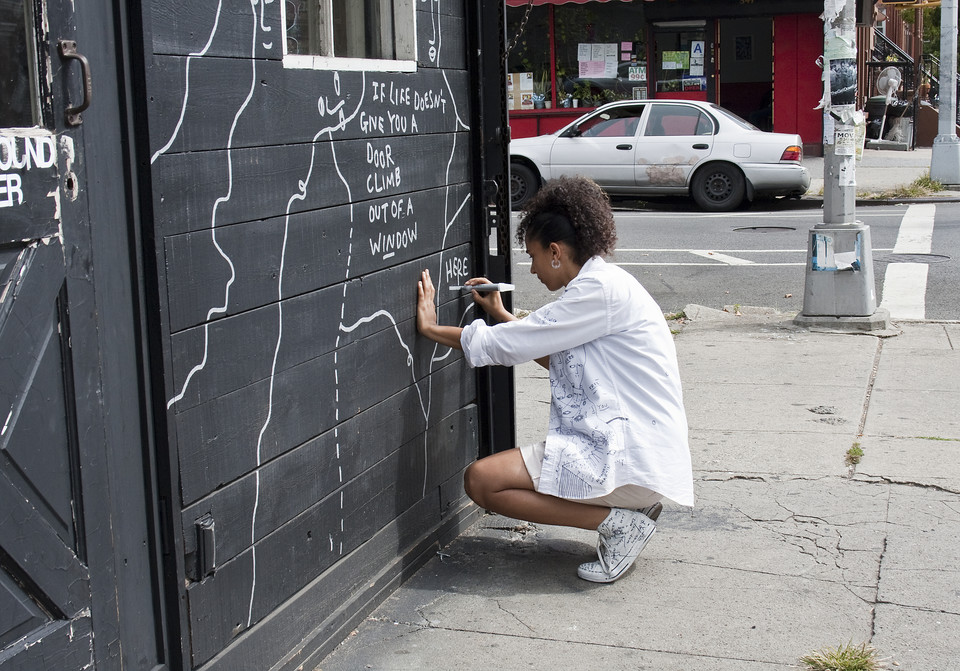 OUND
ER
IF LIFE DOESN'T
GIVE YOU A
DOOR
CLIMB
OUT OF A
WINDOW
HERE
ATM
99¢
A
MOV